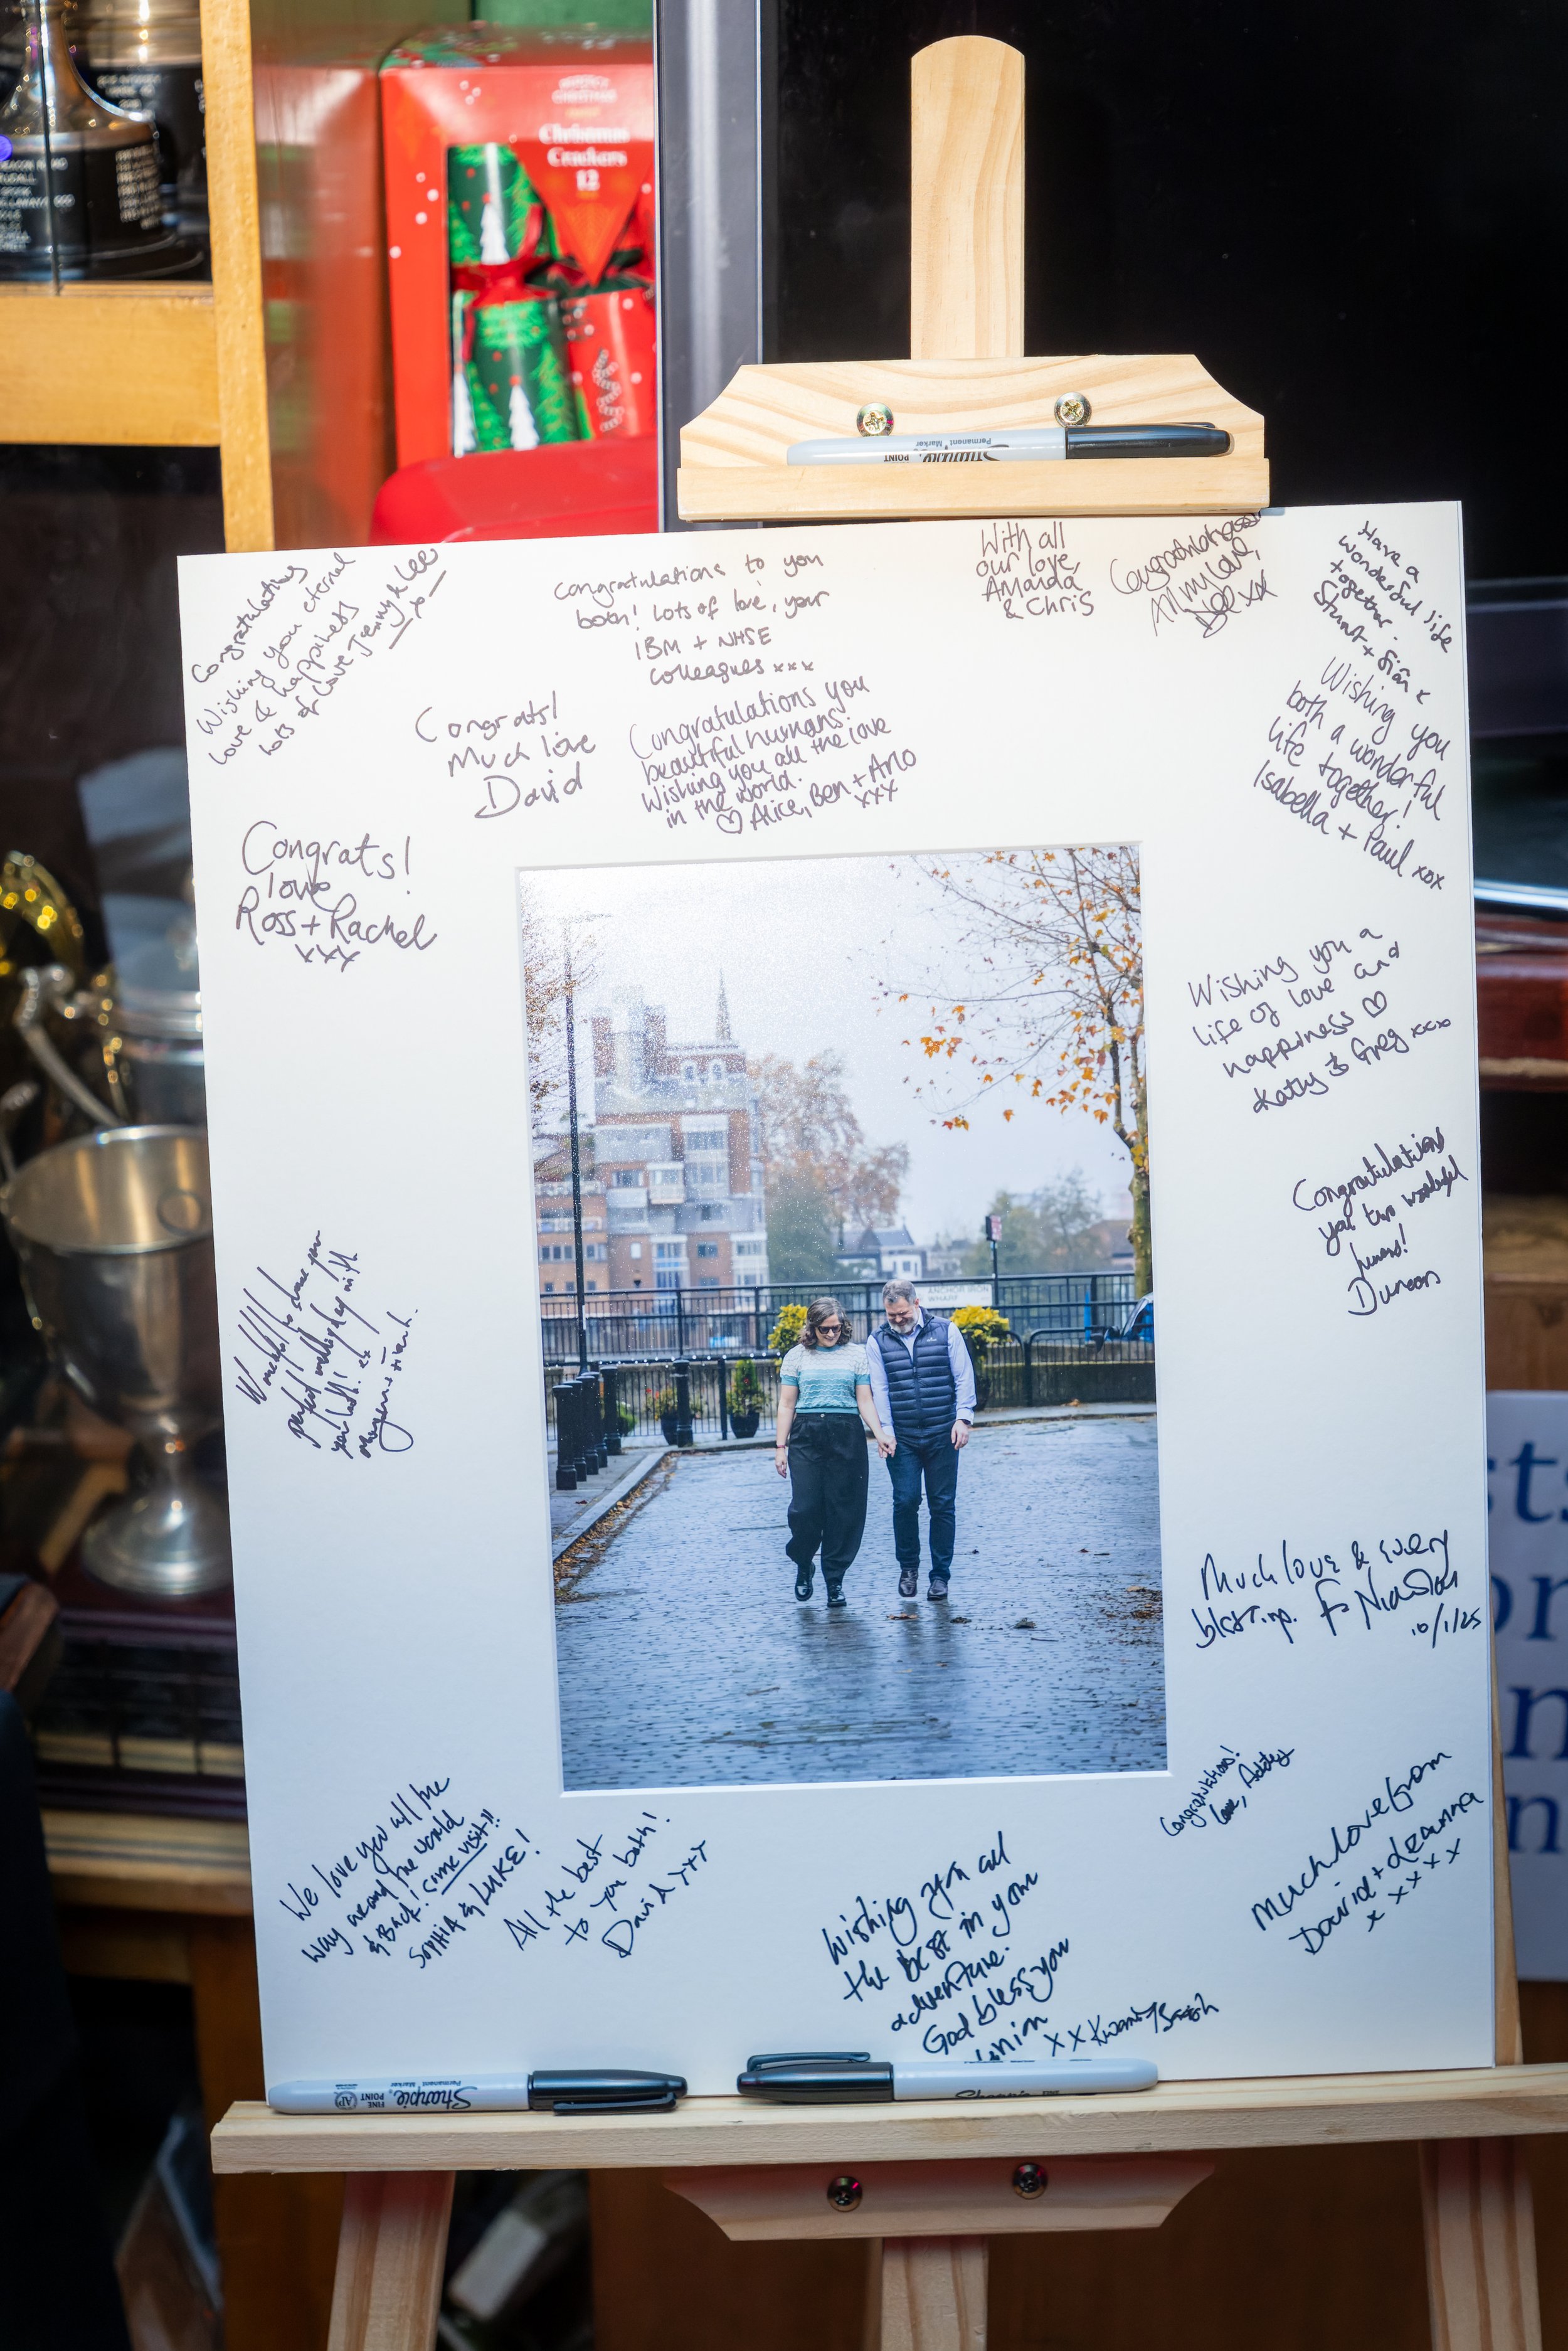 MERRY
CHRISTMAS
Christmas
Crackers
12
Sharpie
Permanent Marker
POINT
Congratulations
Wishing you eternal
love & happiness
lots of love Jenny & Lee
xo
Congratulations to you
both! Lots of love, your
IBM + NHSE
colleagues xxx
With all
our love,
Amanda
& Chris
Congratulations
All my love,
Dee xx
Have a
wonderful life
together.
Stuart + Siân x
Congrats!
Much love
David
Congratulations you
beautiful humans.
Wishing you all the love
in the world.
♡ Alice, Ben + Arlo
xxx
Wishing you
both a wonderful
life together!
Isabella + Paul xox
Congrats!
love
Ross + Rachel
xxx
Wishing you a
life of love and
happiness ♡
Kathy & Greg xxx
Congratulations
you two wonderful
humans!
Duncan
ANCHOR IRON
WHARF
Wonderful to share your
perfect wedding day with
you both!
Much love & every
blessing.
10/1/25
Congratulations!
love,
Much love from
David + Leanna
x x x x x
We love you all the
way around the world
& Back! Come visit!!
SOPHIA & LUKE!
All the best
to you both!
David xxx
Wishing you all
the best in your
adventure.
God bless you
union
xx
Sharpie
Permanent Marker
FINE
POINT
AP
Sharpie